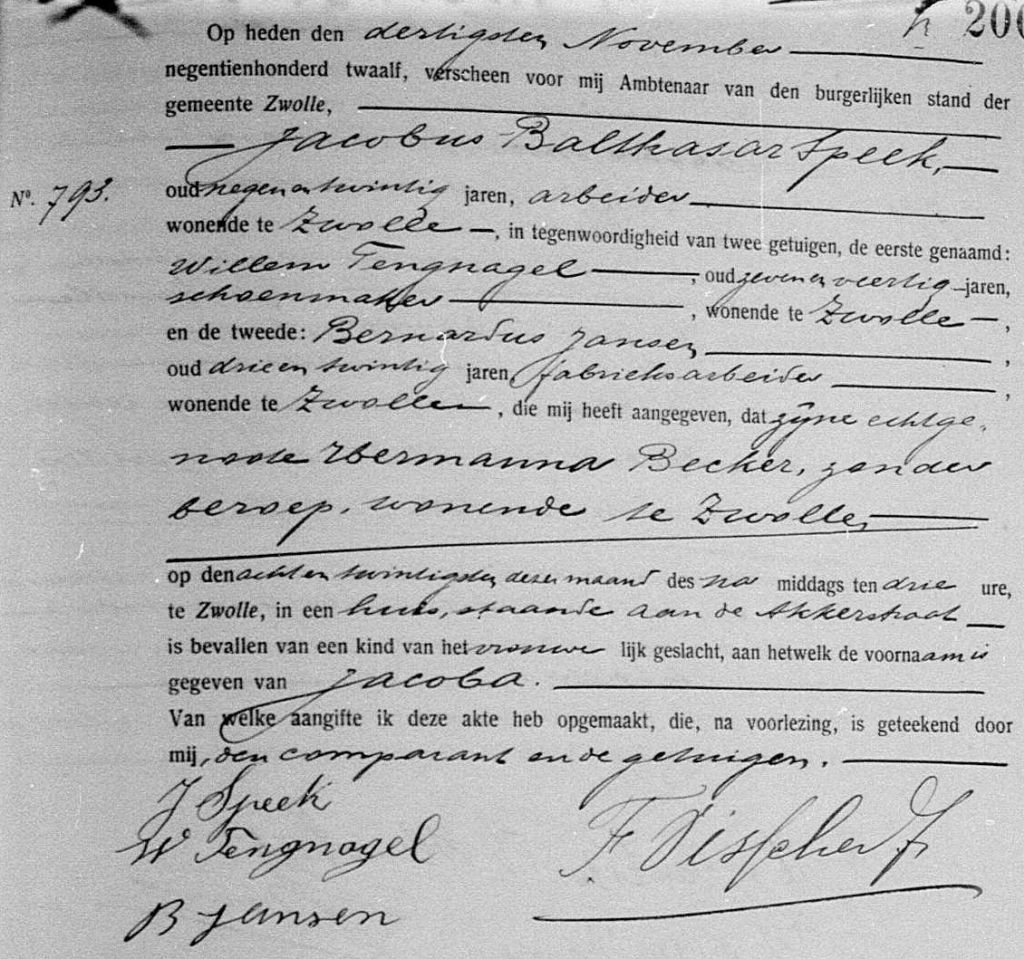 200
Op heden den dertigsten November
negentienhonderd twaalf, verscheen voor mij Ambtenaar van den burgerlijken stand der
gemeente Zwolle,
Jacobus Balthasar Speek,
No. 793.
oud negen en twintig jaren, arbeider
wonende te Zwolle, in tegenwoordigheid van twee getuigen, de eerste genaamd:
Willem Tengnagel, oud zeven en veertig jaren,
schoenmaker, wonende te Zwolle,
en de tweede: Bernardus Jansen,
oud drie en twintig jaren, fabrieksarbeider,
wonende te Zwolle, die mij heeft aangegeven, dat zijne echtge-
noote Hermanna Becker, zonder
beroep, wonende te Zwolle,
op den acht en twintigsten dezer maand des na middags ten drie ure,
te Zwolle, in een huis, staande aan de Akkerstraat
is bevallen van een kind van het vrouwe lijk geslacht, aan hetwelk de voornaam is
gegeven van Jacoba.
Van welke aangifte ik deze akte heb opgemaakt, die, na voorlezing, is geteekend door
mij, den comparant en de getuigen.
J Speek
W Tengnagel
F Visscher
B Jansen